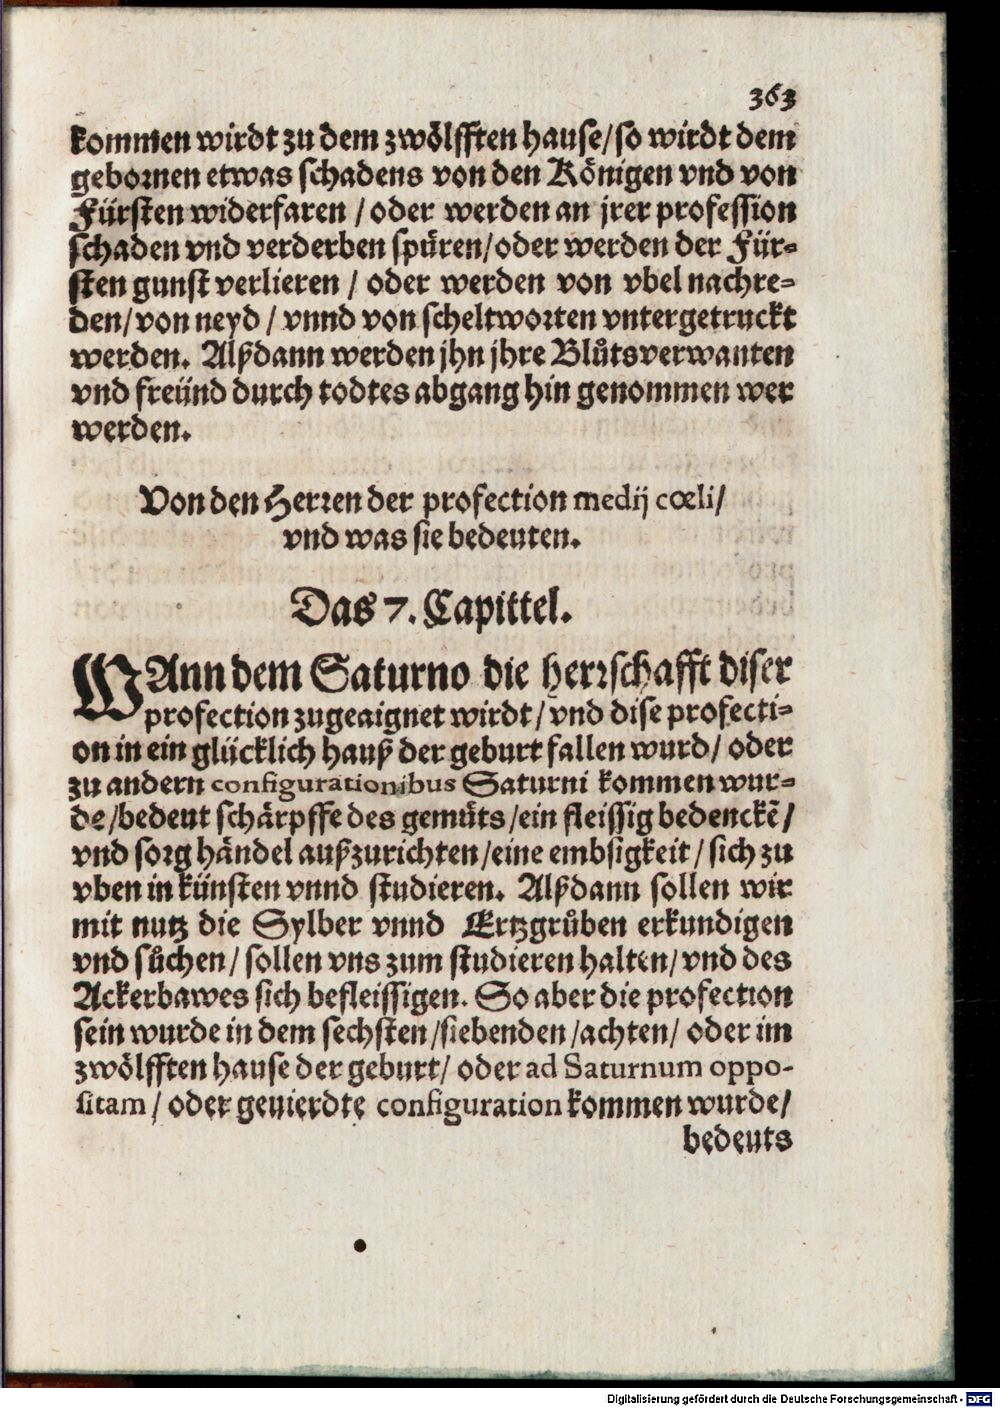 363
kommen wirdt zu dem zwölfften hause/so wirdt dem
gebornen etwas schadens von den Königen vnd von
Fürsten widerfaren / oder werden an jrer profession
schaden vnd verderben spüren/oder werden der Für-
sten gunst verlieren / oder werden von vbel nachre-
den/von neyd / vnnd von scheltworten vntergetruckt
werden. Alßdann werden jhn jhre Blůtsverwanten
vnd freünd durch todtes abgang hin genommen wer
werden.
Von den Herren der profection medij cœli/
vnd was sie bedeuten.
Das 7. Capittel.
WAnn dem Saturno die herrschafft diser
profection zugeaignet wirdt/vnd dise profecti-
on in ein glücklich hauß der geburt fallen wurd/ oder
zu andern configurationibus Saturni kommen wur-
de/bedeut schärpffe des gemüts/ein fleissig bedenckẽ/
vnd sorg händel außzurichten/eine embsigkeit/sich zu
vben in künsten vnnd studieren. Alßdann sollen wir
mit nutz die Sylber vnnd Ertzgrůben erkundigen
vnd sůchen/ sollen vns zum studieren halten/vnd des
Ackerbawes sich befleissigen. So aber die profection
sein wurde in dem sechsten/siebenden/achten/ oder im
zwölfften hause der geburt/ oder ad Saturnum oppo-
sitam/ oder geuierdte configuration kommen wurde/
bedeuts
Digitalisierung gefördert durch die Deutsche Forschungsgemeinschaft - DFG